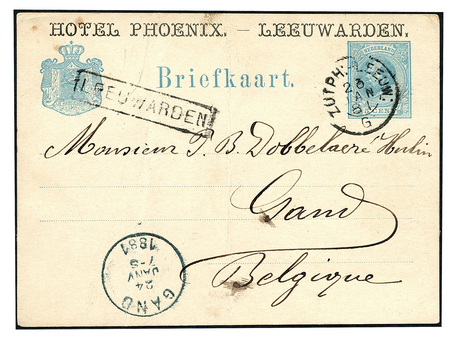 HOTEL PHOENIX. — LEEUWARDEN.
Briefkaart.
NEDERLAND
LEEUWARDEN
ZUTPH: LEEUW:
G
Monsieur J. B. Dobbelaere Herlin
Gand
Belgique
GAND
24
JANV
7-S
1881